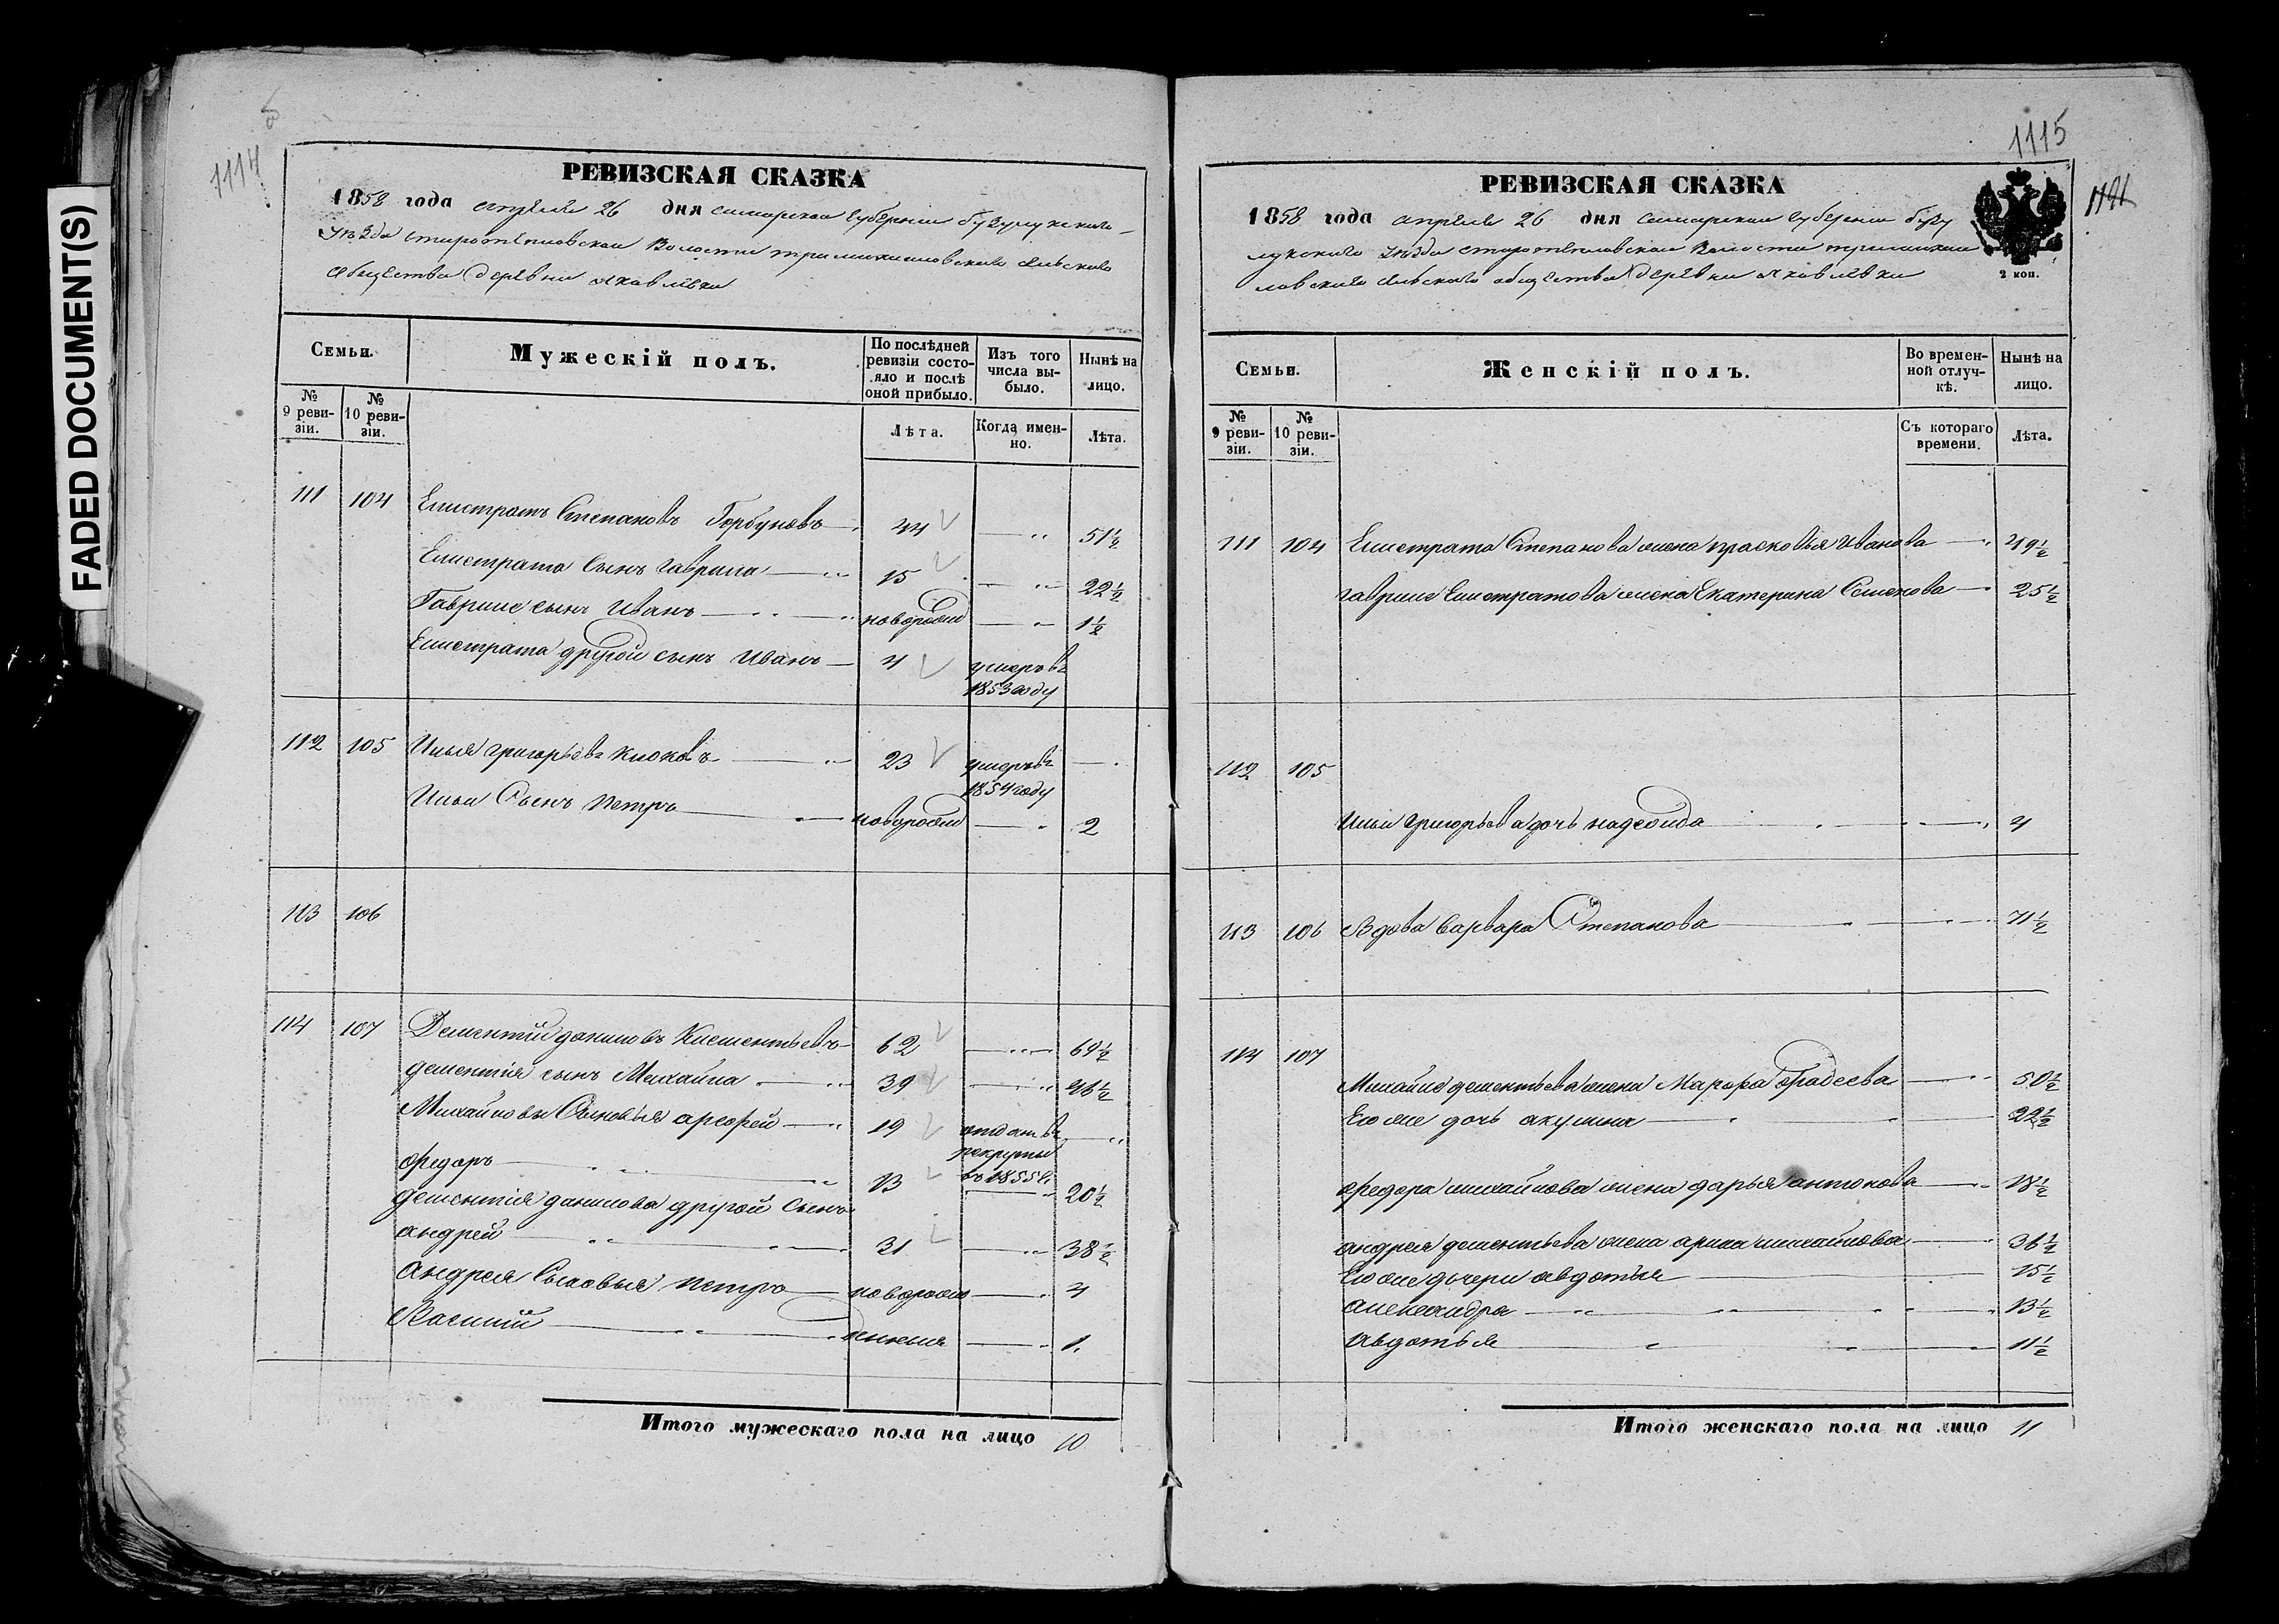 FADED DOCUMENT(S)
1114
РЕВИЗСКАЯ СКАЗКА
1858 года апреля 26 дня самарской губернии бузулукского
уезда старотепловской Волости
общества деревни яковлевки
Семьи.
Мужескій полъ.
По послѣдней ревизіи состояло и послѣ оной прибыло.
Изъ того числа выбыло.
Нынѣ на лицо.
№ 9 ревизіи.
№ 10 ревизіи.
Лѣта.
Когда именно.
Лѣта.
111 104 Елистратъ Степановъ Горбуновъ 44 51½
Елистрата Сынъ гаврила 15 22½
Гаврилы сынъ Иванъ новорож 1½
Елистрата другой сынъ Иванъ 4 умеръ въ
1853 году
112 105 Илья григорьевъ Клоковъ 23 умеръ въ
1854 году
Ильи Сынъ Петръ новорож 2
113 106
114 107 Дементий даниловъ Клементьевъ 62 69½
дементія сынъ Михайла 39 46½
Михайловы Сыновья арефей 19 отдан въ
рекруты
федоръ 13 въ 1855 г. 20½
дементія данилова другой Сынъ
андрей 31 38½
Андрея Сыновья петръ новорож 4
Василий 1.
Итого мужескаго пола на лицо 10
1115
РЕВИЗСКАЯ СКАЗКА
1858 года апреля 26 дня самарской губернии бузу
лукского уезда старотепловской Волости
ловского сельского общества деревни яковлевки
2 коп.
Семьи.
Женскій полъ.
Во временной отлучкѣ.
Нынѣ на лицо.
№ 9 ревизіи.
№ 10 ревизіи.
Съ котораго времени.
Лѣта.
111 104 Елистрата Степанова жена прасковья Иванова 49½
гаврилы Елистратова жена Екатерина Семенова 25½
112 105
Ильи григорьева дочь надежда 4
113 106 Вдова варвара Степанова 71½
114 107
Михайлы дементьева жена Марфа фадеева 50½
Его же дочь акулина 22½
федора михайлова жена дарья антонова 18½
андрея дементьева жена арина михайлова 36½
Его же дочери авдотья 15½
александра 13½
Авдотья 11½
Итого женскаго пола на лицо 11